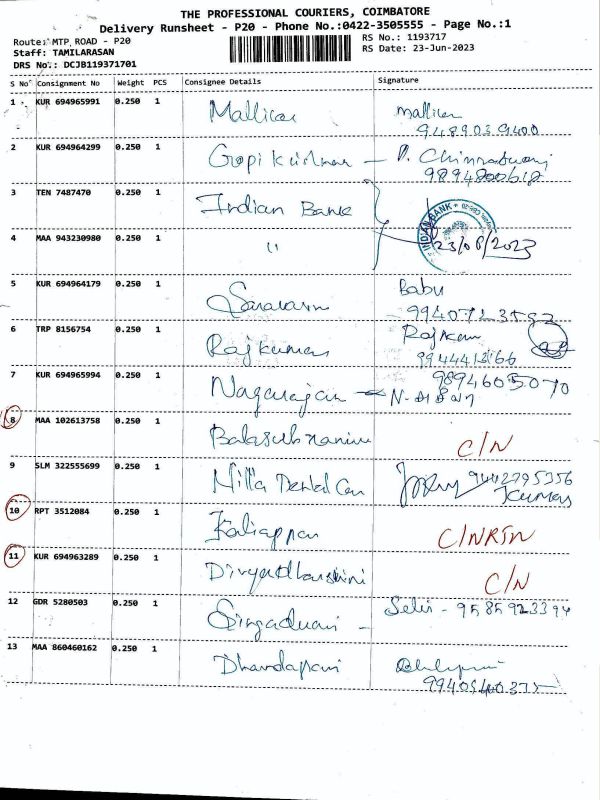 THE PROFESSIONAL COURIERS, COIMBATORE
Delivery Runsheet - P20 - Phone No.:0422-3505555 - Page No.:1
Route: MTP ROAD - P20
RS No.: 1193717
Staff: TAMILARASAN
RS Date: 23-Jun-2023
DRS No.: DCJB119371701
S No Consignment No Weight PCS Consignee Details Signature
1 KUR 694965991 0.250 1 Mallica Mallica
9489039400
2 KUR 694964299 0.250 1 Gopi Krishnan - P. Chinnaswamy
9894800618
3 TEN 7487470 0.250 1 Indian Bank
INDIAN BANK
4 MAA 943230980 0.250 1 " 23/06/2023
5 KUR 694964179 0.250 1 Babu
6 TRP 8156754 0.250 1 Rajkumar Rajkum
7 KUR 694965994 0.250 1 Nagarajan 9894605070
8 MAA 102613758 0.250 1 C/N
9 SLM 322555699 0.250 1 Nilla Dental Car 9442795356
Kumar
10 RPT 3512084 0.250 1 Kaliappan C/NRSN
11 KUR 694963289 0.250 1 Divyadharshini C/N
12 GDR 5280503 0.250 1 Singaduari - Selvi - 9585923394
13 MAA 860460162 0.250 1 Dhandapani